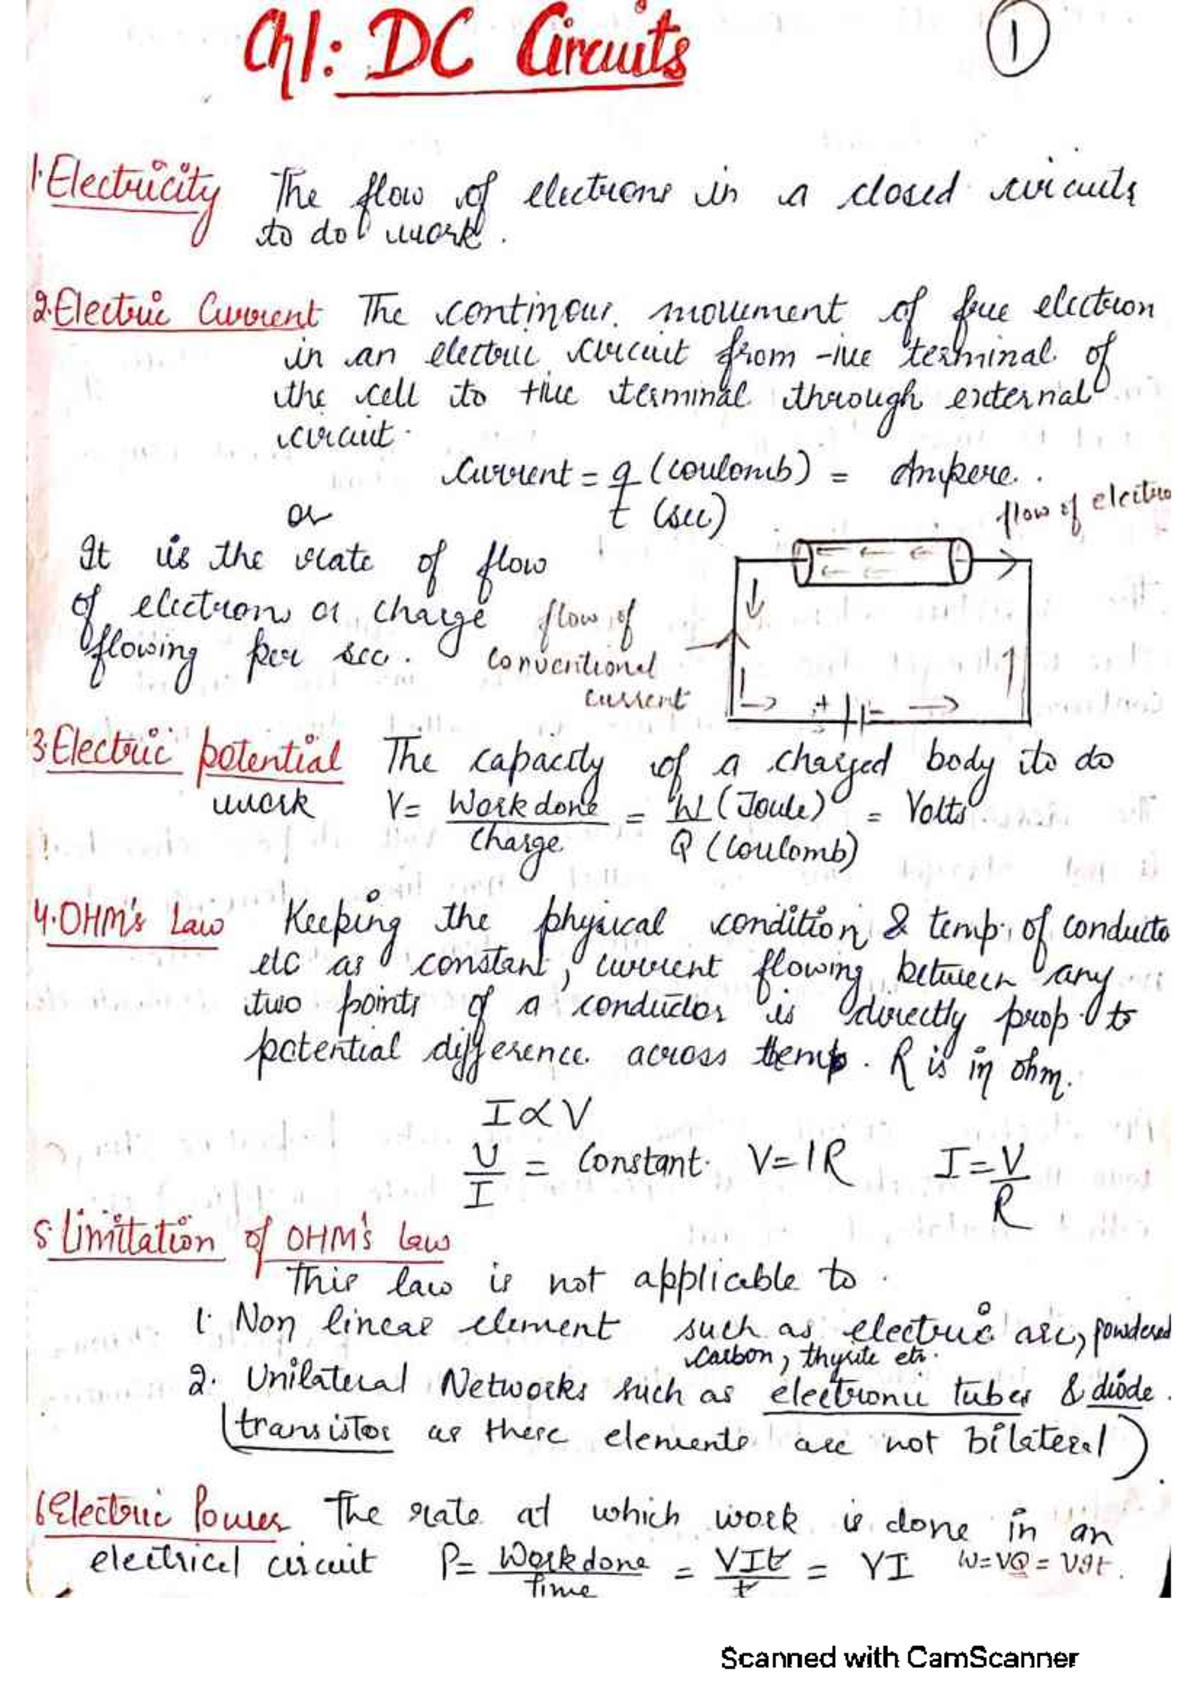 Ch1: DC Circuits
1
1. Electricity The flow of electrons in a closed circuits
to do work.
2. Electric Current The continous movement of free electron
in an electric circuit from -ive terminal of
the cell to +ive terminal through external
circuit.
Current = q (coulomb) = Ampere.
t (sec)
or
flow of electro
It is the rate of flow
of electrons or charge
flowing per sec.
flow of
conventional
current
+ -
3. Electric potential The capacity of a charged body to do
work V= Work done = W (Joule) = Volts
Charge Q (Coulomb)
4. OHM's Law Keeping the physical condition & temp. of conducto
etc as constant, current flowing between any
two points of a conductor is directly prop. to
potential difference across them. R is in ohm.
I ∝ V
V/I = Constant. V=IR I=V/R
5. Limitation of OHM's Law
This law is not applicable to.
1. Non linear element such as electric arc, powdered
carbon, thyrite etc.
2. Unilateral Networks such as electronic tubes & diode.
(transistor as these elements are not bilateral)
6 Electric Power The rate at which work is done in an
electrical circuit P= Work done = VIt = VI W=VQ = VIt.
Time t
Scanned with CamScanner